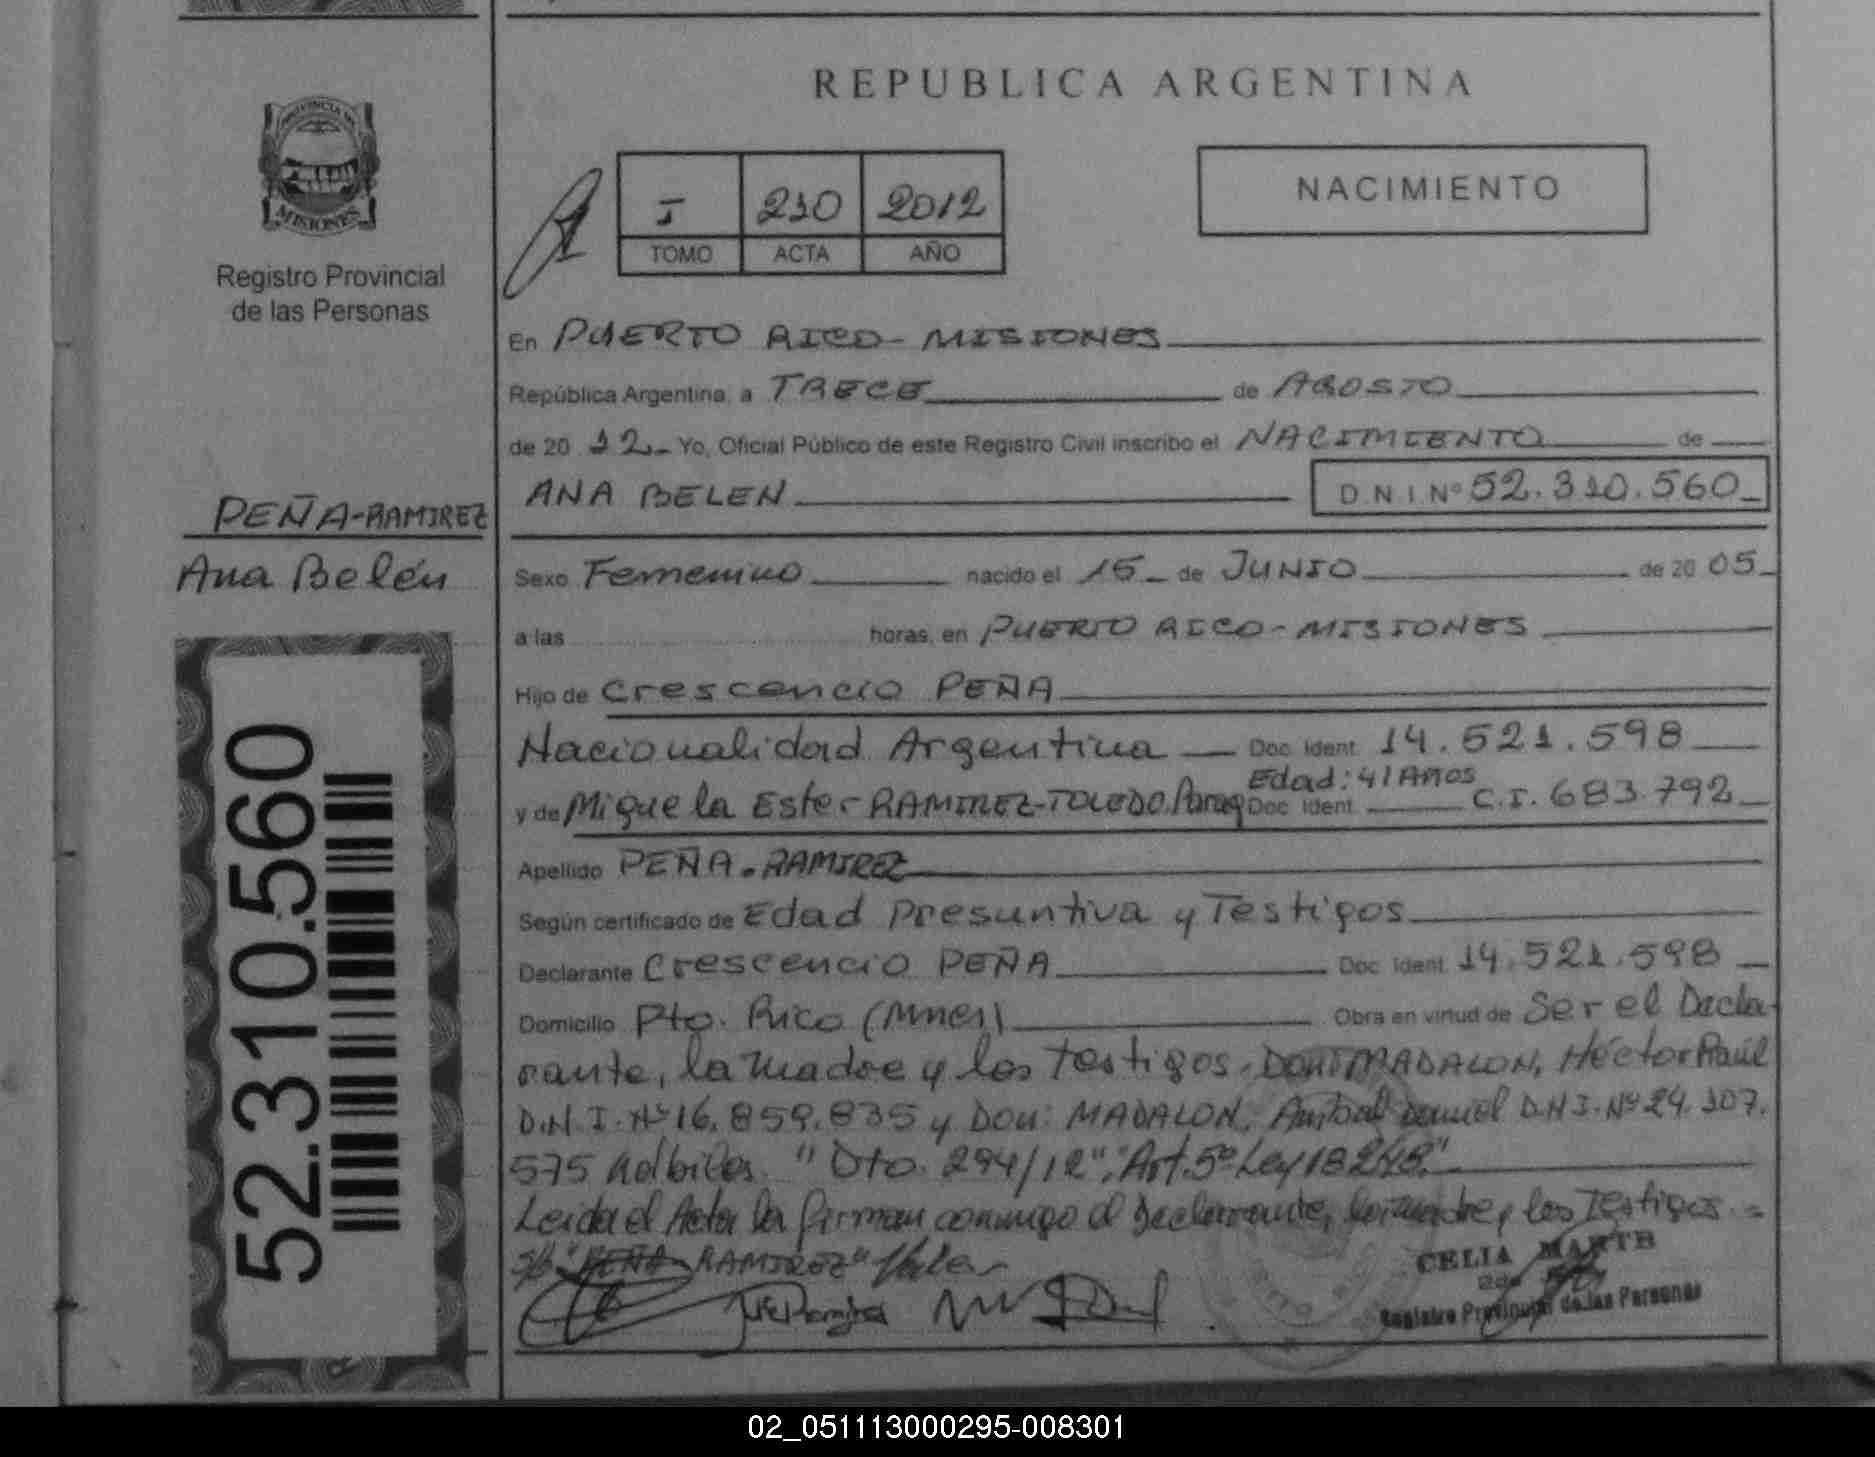 REPUBLICA ARGENTINA
PROVINCIA DE
MISIONES
Registro Provincial
de las Personas
I 210 2012
TOMO ACTA AÑO
NACIMIENTO
En PUERTO RICO - MISIONES
República Argentina, a TRECE de AGOSTO
de 20 12 Yo, Oficial Público de este Registro Civil inscribo el NACIMIENTO de
ANA BELEN D.N.I. Nº 52.310.560
PEÑA-RAMIREZ
Ana Belén
Sexo Femenino nacido el 15 de JUNIO de 20 05
a las horas, en PUERTO RICO - MISIONES
Hijo de Crescencio PEÑA
Nacionalidad Argentina Doc. Ident. 14.521.598
Edad: 41 AÑOS
y de Miguela Ester RAMIREZ-TOLEDO. Parag Doc. Ident. C.I. 683.792
Apellido PEÑA-RAMIREZ
Según certificado de Edad Presuntiva y Testigos
Declarante Crescencio PEÑA Doc. Ident. 14.521.598
Domicilio Pto. Rico (Mnes) Obra en virtud de Ser el Decla-
rante, la madre y los testigos. Don: MADALON, Héctor Raúl
D.N.I. Nº 16.859.835 y Don: MADALON, Anibal Daniel D.N.I. Nº 24.107.
575 Hábiles. "Dto. 294/12", "Art. 5º Ley 18248."
Leida el Acta la firman conmigo el Declarante, la madre y los Testigos.
s/b "PEÑA-RAMIREZ" Vale
52.310.560
CELIA MARTB
Registro Provincial de las Personas
02_051113000295-008301